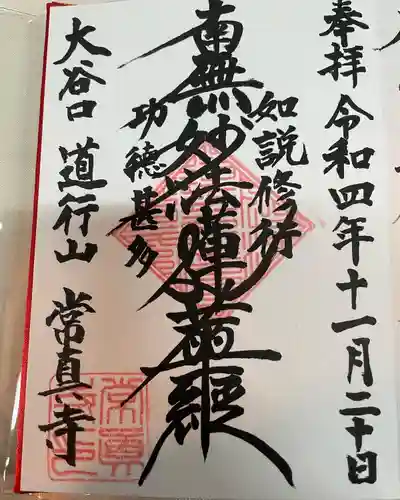 奉拝 令和四年十一月二十日
如説修行
南無妙法蓮華経
功徳甚多
大谷口 道行山 常真寺